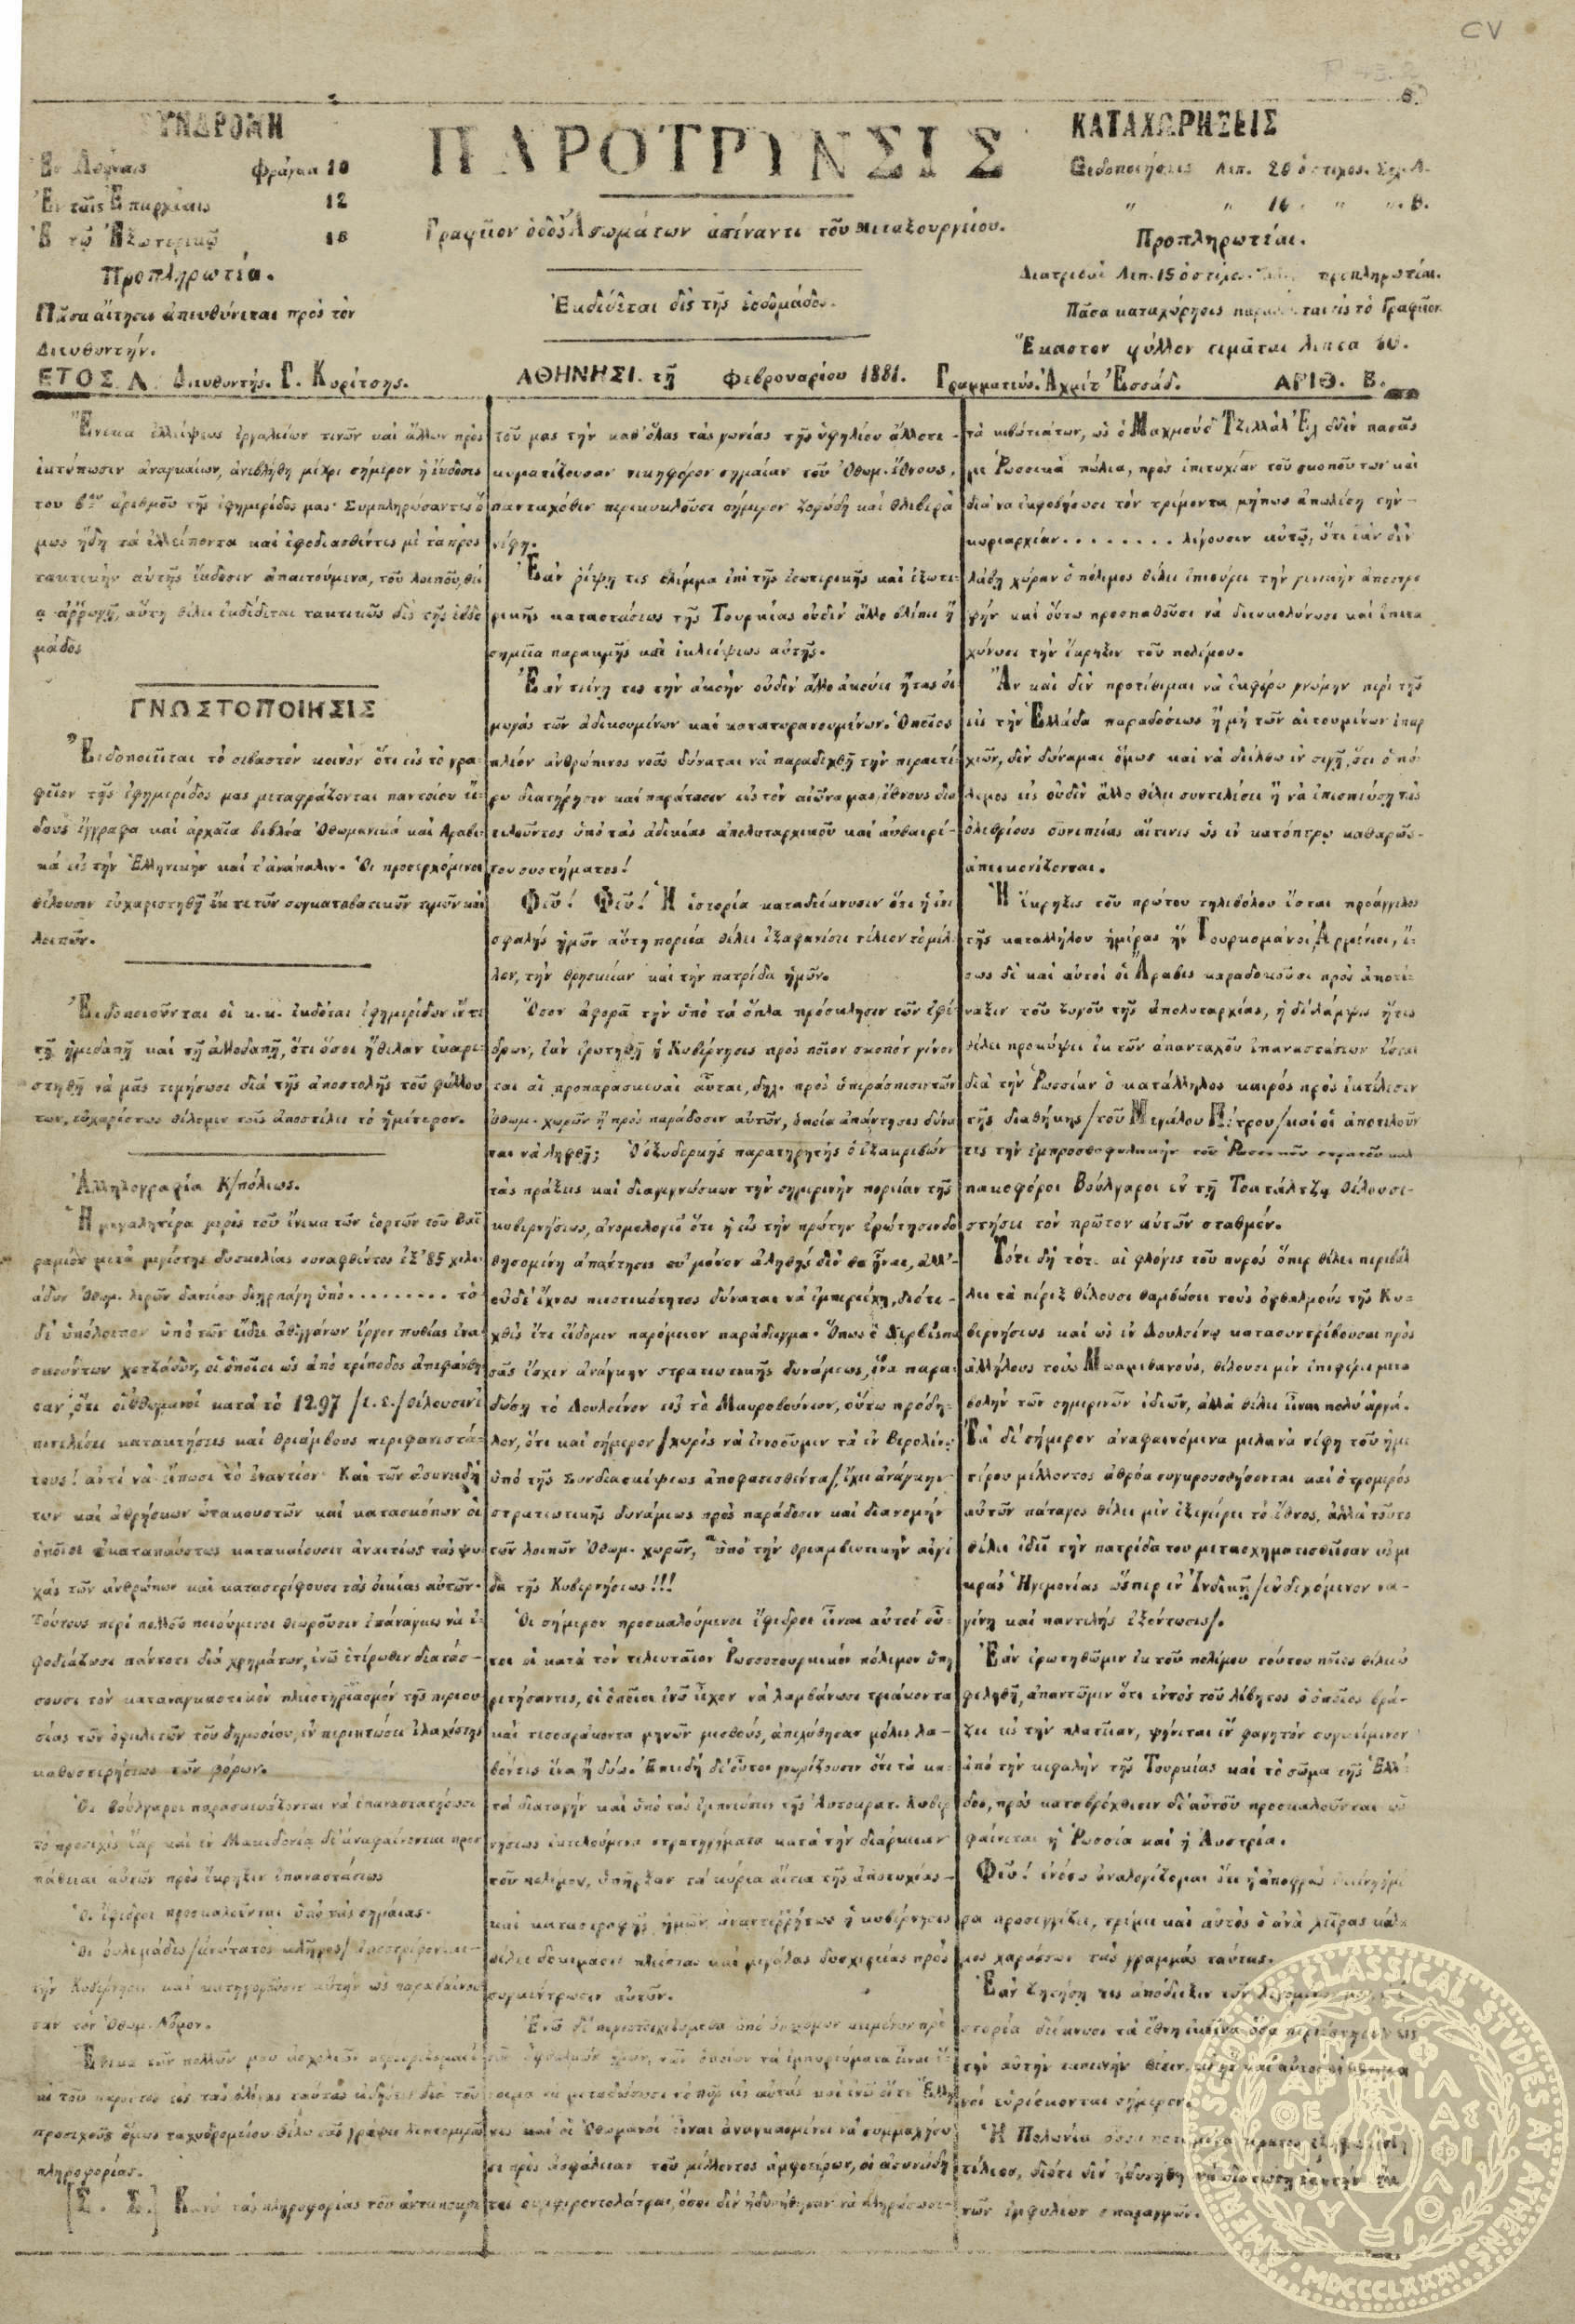 CV
ΣΥΝΔΡΟΜΗ
Ἐν Ἀθήναις Φράγκα 10
Ἐν ταῖς Ἐπαρχίαις 12
Ἐν τῷ Ἐξωτερικῷ
Προπληρωτέα.
Πᾶσα αἴτησις ἀπευθύνεται πρὸς τὸν
Διευθυντήν.
ΠΑΡΟΤΡΥΝΣΙΣ
Γραφεῖον ὁδὸς Ἀσωμάτων ἀπέναντι τοῦ μεταξουργείου.
Ἐκδίδεται δὶς τῆς ἑβδομάδος.
ΚΑΤΑΧΩΡΗΣΕΙΣ
Εἰδοποιήσεις λεπ. 20 ὁ στίχος. Σελ. Δ.
Προπληρωτέαι.
Διατριβαὶ λεπ. 15 ὁ στίχος. προπληρωτέαι.
Πᾶσα καταχώρησις εἰς τὸ Γραφεῖον
Ἕκαστον φύλλον τιμᾶται λεπτὰ
ΕΤΟΣ Α. Διευθυντής. Γ. Κυρίτσης.
ΑΘΗΝΗΣΙ. τῇ Φεβρουαρίου 1881.
Γραμματεύς. Ἀχμὲτ Ἐσσάδ. ΑΡΙΘ. Β.
Ἕνεκα ἐλλείψεως ἐργαλείων τινῶν καὶ ἄλλων πρὸς
ἐκτύπωσιν ἀναγκαίων, ἀνεβλήθη μέχρι σήμερον ἡ ἔκδοσις
του βου ἀριθμοῦ τῆς ἐφημερίδος μας· Συμπληρώσαντες ὅ
μως ἤδη τὰ ἐλλείποντα καὶ ἐφοδιασθέντες μὲ τὰ πρὸς
τακτικὴν αὐτῆς ἔκδοσιν ἀπαιτούμενα, τοῦ λοιποῦ, θεί
ᾳ ἀρρωγῇ, αὕτη θέλει ἐκδίδεται τακτικῶς δὶς τῆς ἑβδο
μάδος
ΓΝΩΣΤΟΠΟΙΗΣΙΣ
Εἰδοποιεῖται τὸ σεβαστὸν κοινὸν ὅτι εἰς τὸ γρα-
φεῖον τῆς ἐφημερίδος μας μεταφράζονται παντοίου εἴ-
δους ἔγγραφα καὶ ἀρχαῖα βιβλία Ὀθωμανικά καὶ Ἀραβι-
κά εἰς τὴν Ἑλληνικὴν καὶ τ'ἀνάπαλιν. Οἱ προσερχόμενοι
θέλουσιν εὐχαριστηθῆ ἔκ τε τῶν συγκαταβατικῶν τιμῶν καὶ
λοιπῶν.
Εἰδοποιοῦνται οἱ κ.κ. ἐκδόται ἐφημερίδων ἔν τε
τῇ ἡμεδαπῇ καὶ τῇ ἀλλοδαπῇ, ὅτι ὅσοι ἤθελαν εὐαρε-
στηθῆ νὰ μᾶς τιμήσωσι διὰ τῆς ἀποστολῆς τοῦ φύλλου
των, εὐχαρίστως θέλομεν τοῖς ἀποστέλει τὸ ἡμέτερον.
Ἀλληλογραφία Κ/πόλεως.
Ἡ μεγαλητέρα μερὶς τοῦ ἕνεκα τῶν ἑορτῶν τοῦ Βαϊ
ραμίου μετὰ μεγίστης δυσκολίας συναφθέντος ἐξ 85 χιλι-
άδων Ὀθωμ. λιρῶν δανείου διηρπάγη ὑπὸ......... τὸ
δὲ ὑπόλοιπον ὑπὸ τῶν εἴδει ἀθιγγάνων ἔργον πυθίας ἐνα-
σκούντων χοτζάδων, οἱ ὁποῖοι ὡς ἀπὸ τρίποδος ἀπεφάνθη
σαν, ὅτι οἱ Ὀθωμανοὶ κατὰ τὸ 1297 /τ.ε./ θέλουσιν ἐ
πιτελέσει κατακτήσεις καὶ θριάμβους περιφανεστά-
τους! ἀντὶ νὰ εἴπωσι τὸ ἐναντίον· Καὶ τῶν ἀσυνειδή
των καὶ ἀθρήσκων ὠτακουστῶν καὶ κατασκόπων οἱ
ὁποῖοι ἀκαταπαύστως κατακαίουσιν ἀναιτίως τὰς ψυ
χὰς τῶν ἀνθρώπων καὶ καταστρέφουσι τὰς οἰκίας αὐτῶν.
Τούτους περὶ πολλοῦ ποιούμενοι θεωροῦσιν ἐπάναγκες νὰ ἐ-
φοδιάζωσι πάντοτε διὰ χρημάτων, ἐνῶ ἑτέρωθεν διατάσ-
σουσι τὸν καταναγκαστικὸν πλειστηριασμόν τῆς περιου
σίας τῶν ὀφειλετῶν τοῦ δημοσίου, ἐν περιπτώσει ἐλαχίστης
καθυστερήσεως τῶν φόρων.
Οἱ Βούλγαροι παρασκευάζονται νὰ ἐπαναστατήσωσι
τὸ προσεχὲς ἔαρ καὶ ἐν Μακεδονίᾳ δὲ ἀναφαίνονται προσ
πάθειαι αὐτῶν πρὸς ἔκρηξιν ἐπαναστάσεως
Οἱ ἔφεδροι προσκαλοῦνται ὑπὸ τὰς σημαίας.
Οἱ οὐλεμάδες/ἀνώτατος κλῆρος/
τὴν Κυβέρνησιν καὶ κατηγοροῦσιν αὐτὴν ὡς παραβαίνου
σαν τὸν Ὀθωμ. Νόμον.
Ἕνεκα τῶν πολλῶν μου ἀσχολιῶν περιορίζομαι
τοῦ παρόντος εἰς τὰς ὀλίγας ταύτας εἰδήσεις διὰ τοῦ
προσεχοῦς ὅμως ταχυδρομείου θέλω σᾶς γράψει λεπτομερῶ
πληροφορίας.
[Σ. Σ.] Κατὰ τὰς πληροφορίας τοῦ ἀνταποκρι
τοῦ μας τὴν καθ'ὅλας τὰς γωνίας τῆς ὑφηλίου ἄλλοτε -
κυματίζουσαν νικηφόρον σημαίαν τοῦ Ὀθωμ. ἔθνους,
πανταχόθεν περικυκλοῦσι σήμερον ζοφώδη καὶ θλιβερὰ
νέφη.
Ἐὰν ῥίψῃ τις βλέμμα ἐπὶ τῆς ἐσωτερικῆς καὶ ἐξωτε-
ρικῆς καταστάσεως τῆς Τουρκίας οὐδὲν ἄλλο βλέπει ἢ
σημεῖα παρακμῆς καὶ ἐκλείψεως αὐτῆς.
Ἐὰν τείνῃ τις τὴν ἀκοὴν οὐδὲν ἄλλο ἀκούει ἢ τὰς οἰ
μωγὰς τῶν ἀδικουμένων καὶ κατατυραννουμένων. Ὁποῖος
πλέον ἀνθρώπινος νοῦς δύναται νὰ παραδεχθῇ τὴν περαιτέ-
ρω διατήρησιν καὶ παράτασιν εἰς τὸν αἰῶνα μας, ἔθνους δια
τελοῦντος ὑπὸ τὰς ἀδικίας ἀπολυταρχικοῦ καὶ αὐθαιρέ-
του συστήματος!
Φεῦ! Φεῦ! Ἡ ἱστορία καταδείκνυσιν ὅτι ἡ ἐπι
σφαλής ἡμῶν αὕτη πορεία θέλει ἐξαφανίσει τέλεον τὸ μέλ-
λον, τὴν θρησκείαν καὶ τὴν πατρίδα ἡμῶν.
Ὅσον ἀφορᾷ τὴν ὑπὸ τὰ ὅπλα πρόσκλησιν τῶν ἐφέ-
δρων, ἐὰν ἐρωτηθῇ ἡ Κυβέρνησις πρὸς ποῖον σκοπὸν γίνον
ται αἱ προπαρασκευαὶ αὗται, δηλ. πρὸς ὑπεράσπισιν τῶν
Ὀθωμ. χωρῶν ἢ πρὸς παράδοσιν αὐτῶν, ὁποία ἀπάντησις δύνα
ται νὰ ληφθῇ; Ὁ ὀξυδερκής παρατηρητὴς ὁ ἐξακριβῶν
τὰς πράξεις καὶ διαγιγνώσκων τὴν σημερινὴν πορείαν τῆς
κυβερνήσεως, ἀνομολογεῖ ὅτι ἡ εἰς τὴν πρώτην ἐρώτησιν δο
θησομένη ἀπάντησις οὐ μόνον ἀληθὴς δὲν θὰ ἦναι, ἀλλ'-
οὐδὲ ἴχνος πιστικότητος δύναται νὰ ἐμπεριέχῃ, διότι -
χθὲς ἔτι εἴδομεν παρόμοιον παράδειγμα. Ὅπως ὁ Δερβὶς πα
σᾶς ἔσχεν ἀνάγκην στρατιωτικῆς δυνάμεως, ἵνα παρα-
δώσῃ τὸ Δουλσίνον εἰς τὸ Μαυροβούνιον, οὕτω πρόδη-
λον, ὅτι καὶ σήμερον/χωρὶς νὰ ἐννοοῦμεν τὰ ἐν Βερολίνῳ
ὑπὸ τῆς Συνδιασκέψεως ἀποφασισθέντα/, ἔχει ἀνάγκην-
στρατιωτικῆς δυνάμεως πρὸς παράδοσιν καὶ διανομὴν
τῶν λοιπῶν Ὀθωμ. χωρῶν, "ὑπὸ τὴν θριαμβευτικὴν αἰγί
δα τῆς Κυβερνήσεως!!!
Οἱ σήμερον προσκαλούμενοι ἔφεδροι εἶναι αὐτοί οὗ-
τοι οἱ κατὰ τὸν τελευταῖον Ῥωσσοτουρκικὸν πόλεμον ὑπη
ρετήσαντες, οἱ ὁποῖοι ἐνῶ εἶχον νὰ λαμβάνωσι τριάκοντα
καὶ τεσσαράκοντα μηνῶν μισθούς, ἀπελύθησαν μόλις λα-
βόντες ἕνα ἢ δύω. Ἐπειδὴ δὲ οὗτοι γνωρίζουσιν ὅτι τὰ κα-
τὰ διαταγὴν καὶ ὑπὸ τὰς ἐμπνεύσεις τῆς Αὐτοκρατ. Κυβερ
νήσεως ἐκτελούμενα στρατηγήματα κατὰ τὴν διάρκειαν
τοῦ πολέμου, ὑπῆρξαν τὰ κύρια αἴτια τῆς ἀποτυχίας-
καὶ καταστροφῆς ἡμῶν, ἀναντιρρήτως ἡ κυβέρνησις
θέλει δοκιμάσει πλείστας καὶ μεγάλας δυσχερείας πρὸς
συγκέντρωσιν αὐτῶν.
Ἐνῶ δὲ περιστοιχιζόμεθα ὑπὸ
τῶν ὀφθαλμῶν ἡμῶν, τῶν ὁποίων τὰ ἐμπυρεύματα εἶναι ἕ-
τοιμα νὰ μεταδώσωσι τὸ πῦρ εἰς αὐτάς καὶ ἐνῶ οἵ τε Ἕλλη
νες καὶ οἱ Ὀθωμανοὶ εἶναι ἀναγκασμένοι νὰ συμμαχήσω
σι πρὸς ἀσφάλειαν τοῦ μέλλοντος ἀμφοτέρων, οἱ ἀσυνείδη
τοι συμφεροντολάτραι, ὅσοι δὲν ἠδυνήθησαν νὰ πληρώσωσι-
τὰ κιβώτιά των, ὡς ὁ Μαχμοὺδ Τζελλὰλ Ἐλ δὶν πασᾶς
μὲ Ῥωσσικὰ πώλια, πρὸς ἐπιτυχίαν τοῦ σκοποῦ των καὶ
διὰ νὰ ἐκφοβήσωσι τὸν τρέμοντα μήπως ἀπωλέσῃ τὴν -
κυριαρχίαν........ λέγουσιν αὐτῷ, ὅτι ἐὰν δὲν
λάβῃ χώραν ὁ πόλεμος θέλει ἐπισύρει τὴν γενικὴν ἀποστρο
φήν καὶ οὕτω προσπαθοῦσι νὰ διευκολύνωσι καὶ ἐπιτα
χύνωσι τὴν ἔκρηξιν τοῦ πολέμου.
Ἂν καὶ δὲν προτίθεμαι νὰ ἐκφέρω γνώμην περὶ τῆς
εἰς τὴν Ἑλλάδα παραδόσεως ἢ μὴ τῶν αἰτουμένων ἐπαρ
χιῶν, δὲν δύναμαι ὅμως καὶ νὰ διέλθω ἐν σιγῇ, ὅτι ὁ πό-
λεμος εἰς οὐδὲν ἄλλο θέλει συντελέσει ἢ νὰ ἐπισπεύσῃ τὰς
ὀλεθρίους συνεπείας αἵτινες ὡς ἐν κατόπτρῳ καθαρῶς-
ἀπεικονίζονται.
Ἡ ἔκρηξις τοῦ πρώτου τηλεβόλου ἔσται προάγγελος
τῆς καταλλήλου ἡμέρας ἣν Τουρκομάνοι, Ἀρμένιοι, ἴ-
σως δὲ καὶ αὐτοὶ οἱ Ἄραβες καραδοκοῦσι πρὸς ἀποτί-
ναξιν τοῦ ζυγοῦ τῆς ἀπολυταρχίας, ἡ δὲ λάμψις ἥτις
θέλει προκύψει ἐκ τῶν ἁπανταχοῦ ἐπαναστάσεων ἔσται
διὰ τὴν Ῥωσσίαν ὁ κατάλληλος καιρὸς πρὸς ἐκτέλεσιν
τῆς διαθήκης/τοῦ Μεγάλου Πέτρου/καὶ οἱ ἀποτελοῦν
τες τὴν ἐμπροσθοφυλακὴν τοῦ Ῥωσσικοῦ στρατοῦ καλ
πακοφόροι Βούλγαροι ἐν τῇ Τσατάλτζᾳ θέλουσι-
στήσει τὸν πρῶτον αὐτῶν σταθμόν.
Τότε δὴ τότε αἱ φλόγες τοῦ πυρός ὅπερ θέλει περιβάλ
λει τὰ πέριξ θέλουσι θαμβώσει τοὺς ὀφθαλμούς τῆς Κυ-
βερνήσεως καὶ ὡς ἐν Δουλσίνῳ κατασυντρίβουσαι πρὸς
ἀλλήλους τοὺς Μωαμεθανούς, θέλουσι μὲν ἐπιφέρει μετα
βολὴν τῶν σημερινῶν ἰδεῶν, ἀλλὰ θέλει εἶναι πολὺ ἀργά.
Τὰ δὲ σήμερον ἀναφαινόμενα μελανὰ νέφη τοῦ ἡμε
τέρου μέλλοντος ἀθρόα συγκρουσθήσονται καὶ ὁ τρομερός
αὐτῶν πάταγος θέλει μὲν ἐξεγείρει τὸ ἔθνος, ἀλλὰ τοῦτο
θέλει ἰδεῖ τὴν πατρίδα του μετασχηματισθεῖσαν εἰς μι
κρὰς Ἡγεμονίας ὥσπερ ἐν Ἰνδικῇ/ἐνδεχόμενον να-
γίνῃ καὶ παντελής ἐξόντωσις/.
Ἐὰν ἐρωτηθῶμεν ἐκ τοῦ πολέμου τούτου ποῖος θέλει ὠ
φεληθῆ, ἀπαντῶμεν ὅτι ἐντὸς τοῦ λέβητος ὁ ὁποῖος βρά-
ζει εἰς τὴν πλατεῖαν, ψήνεται ἓν φαγητὸν συγκείμενον
ἀπὸ τὴν κεφαλὴν τῆς Τουρκίας καὶ τὸ σῶμα τῆς Ἑλλά
δος, πρὸς καταβρόχθισιν δὲ αὐτοῦ προσκαλοῦνται ὡς
φαίνεται ἡ Ῥωσσία καὶ ἡ Αὐστρία.
Φεῦ! ἐνόσω ἀναλογίζομαι ὅτι ἡ ἀποφρὰς ἐκείνη ἡμέ
ρα προσεγγίζει, τρέμει καὶ αὐτὸς ὁ ἀνὰ χεῖρας κάλα
μος χαράσσων τὰς γραμμὰς ταύτας.
Ἐὰν ζητήσῃ τις ἀπόδειξιν τῶν λεγομένων μου,
στορία δείκνυσι τὰ ἔθνη ἐκεῖνα ὅσα περιέστησαν εἰς
τὴν αὐτὴν ταπεινὴν θέσιν, εἰς ἣν καὶ αὐτοὶ οἱ Ὀθωμα
νοὶ εὑρίσκονται σήμερον.
Ἡ Πολωνία οὖσα ποτὲ μέγα κράτος ἐξηφανίσθη
τέλεον, διότι δὲν ἠδυνήθη νὰ διασώσῃ ἑαυτὴν ἐκ
τῶν ἐμφυλίων σπαραγμῶν.
AMERICAN SCHOOL OF CLASSICAL STUDIES AT ATHENS
MDCCCLXXXI
ΠΑΡΘΕΝΟΥ ΦΙΛΑΣ ΦΙΛΟΙ